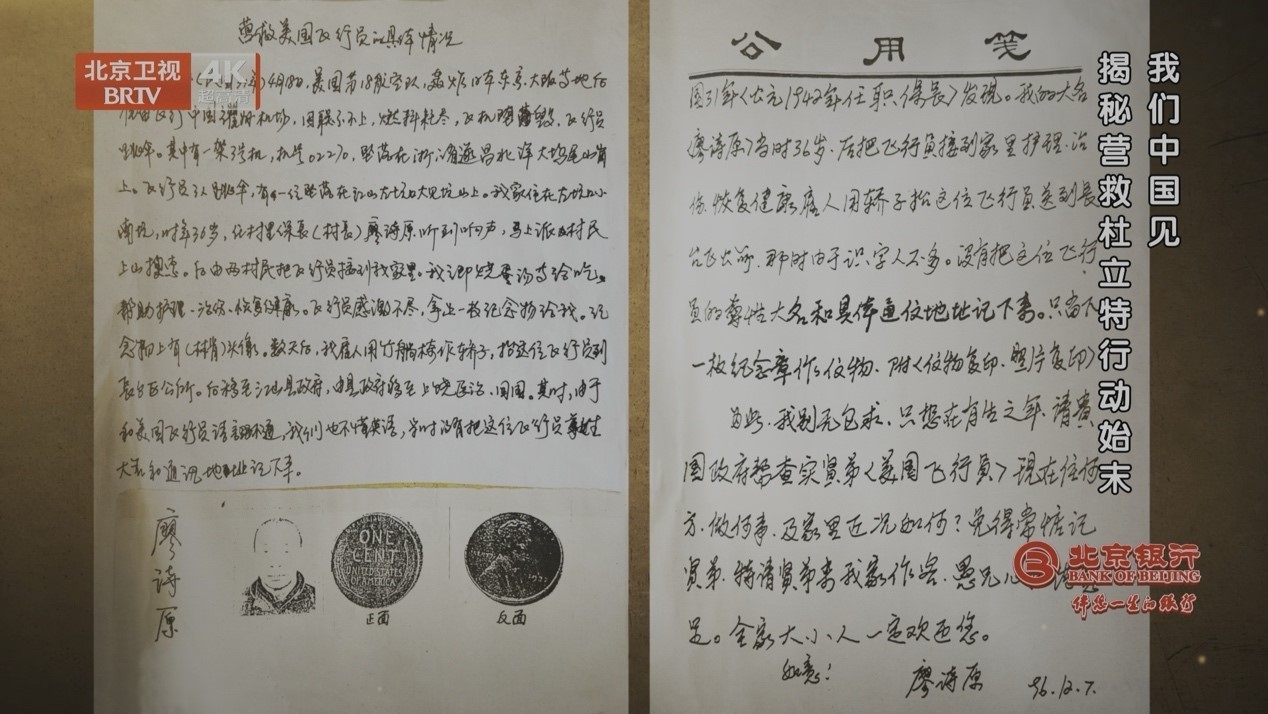 北京卫视 4K
BRTV 超高清
营救美国飞行员的具体情况
4月18日,美国第18航空队,轰炸日本东京、大阪等地后
中国衢州机场,因联系不上,燃料耗尽,飞机
跳伞。其中有一架飞机,机号02270,坠落在浙江省遂昌北洋大坞尾山背
上。飞行员5人跳伞,有一位坠落在江山左坑大见坑山上。我家住在左坑小
南坑,时年36岁,任村里保长(村长)廖诗原听到响声,马上派村民
上山搜索。后由两村民把飞行员接到我家里。我立即烧蛋汤等给吃,
帮助护理、治伤、恢复健康。飞行员感激不尽,拿出一枚纪念物给我。纪
念物上有(林肯)头像。数天后,我雇人用竹躺椅作轿子,抬这位飞行员到
长台区公所。后移至江山县政府,由县政府移至上饶医治、回国。其时,由于
和美国飞行员语言不通,我们也不懂英语,当时没有把这位飞行员尊姓
大名和通讯地址记下来。
廖诗原
ONE
CENT
UNITED STATES
OF AMERICA
正面
反面
公用笺
国31年<公元1942年任职保长>发现。我的大名
<廖诗原>当时36岁。后把飞行員接到家里护理、治
伤、恢复健康雇人用轿子抬这位飞行員送到長
台飞出所,那时由于识字人不多。没有把这位飞行
員的尊姓大名和具体通位地址记下来。只留下
一枚纪念章作仪物。附<仪物复印、照片复印>
为此,我别无包求,只想在有生之年,请貴
国政府帮查实贤弟<美国飞行員>现在住何
方、做何事,及家里近况如何?免得常惦记
贤弟,特请贤弟来我家作客,愚兄
足。全家大小人一定欢迎您。
如意!
廖诗原 96.12.7.
我们中国见
揭秘营救杜立特行动始末
北京银行
BANK OF BEIJING
伴您一生的银行